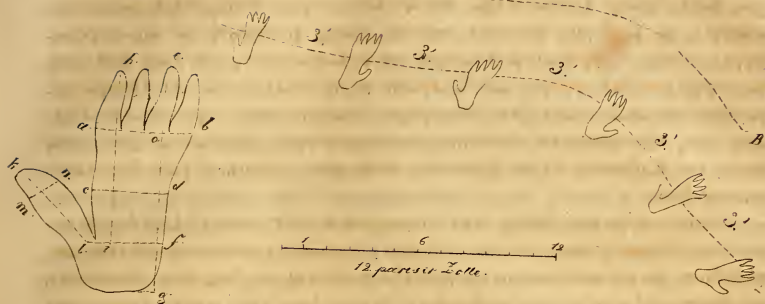 3.' 3.' 3.' 3.' 3.'
B
h. c.
a o b
k n.
m
c d
l. i f
g.
1 6 12
12 pariser Zolle.